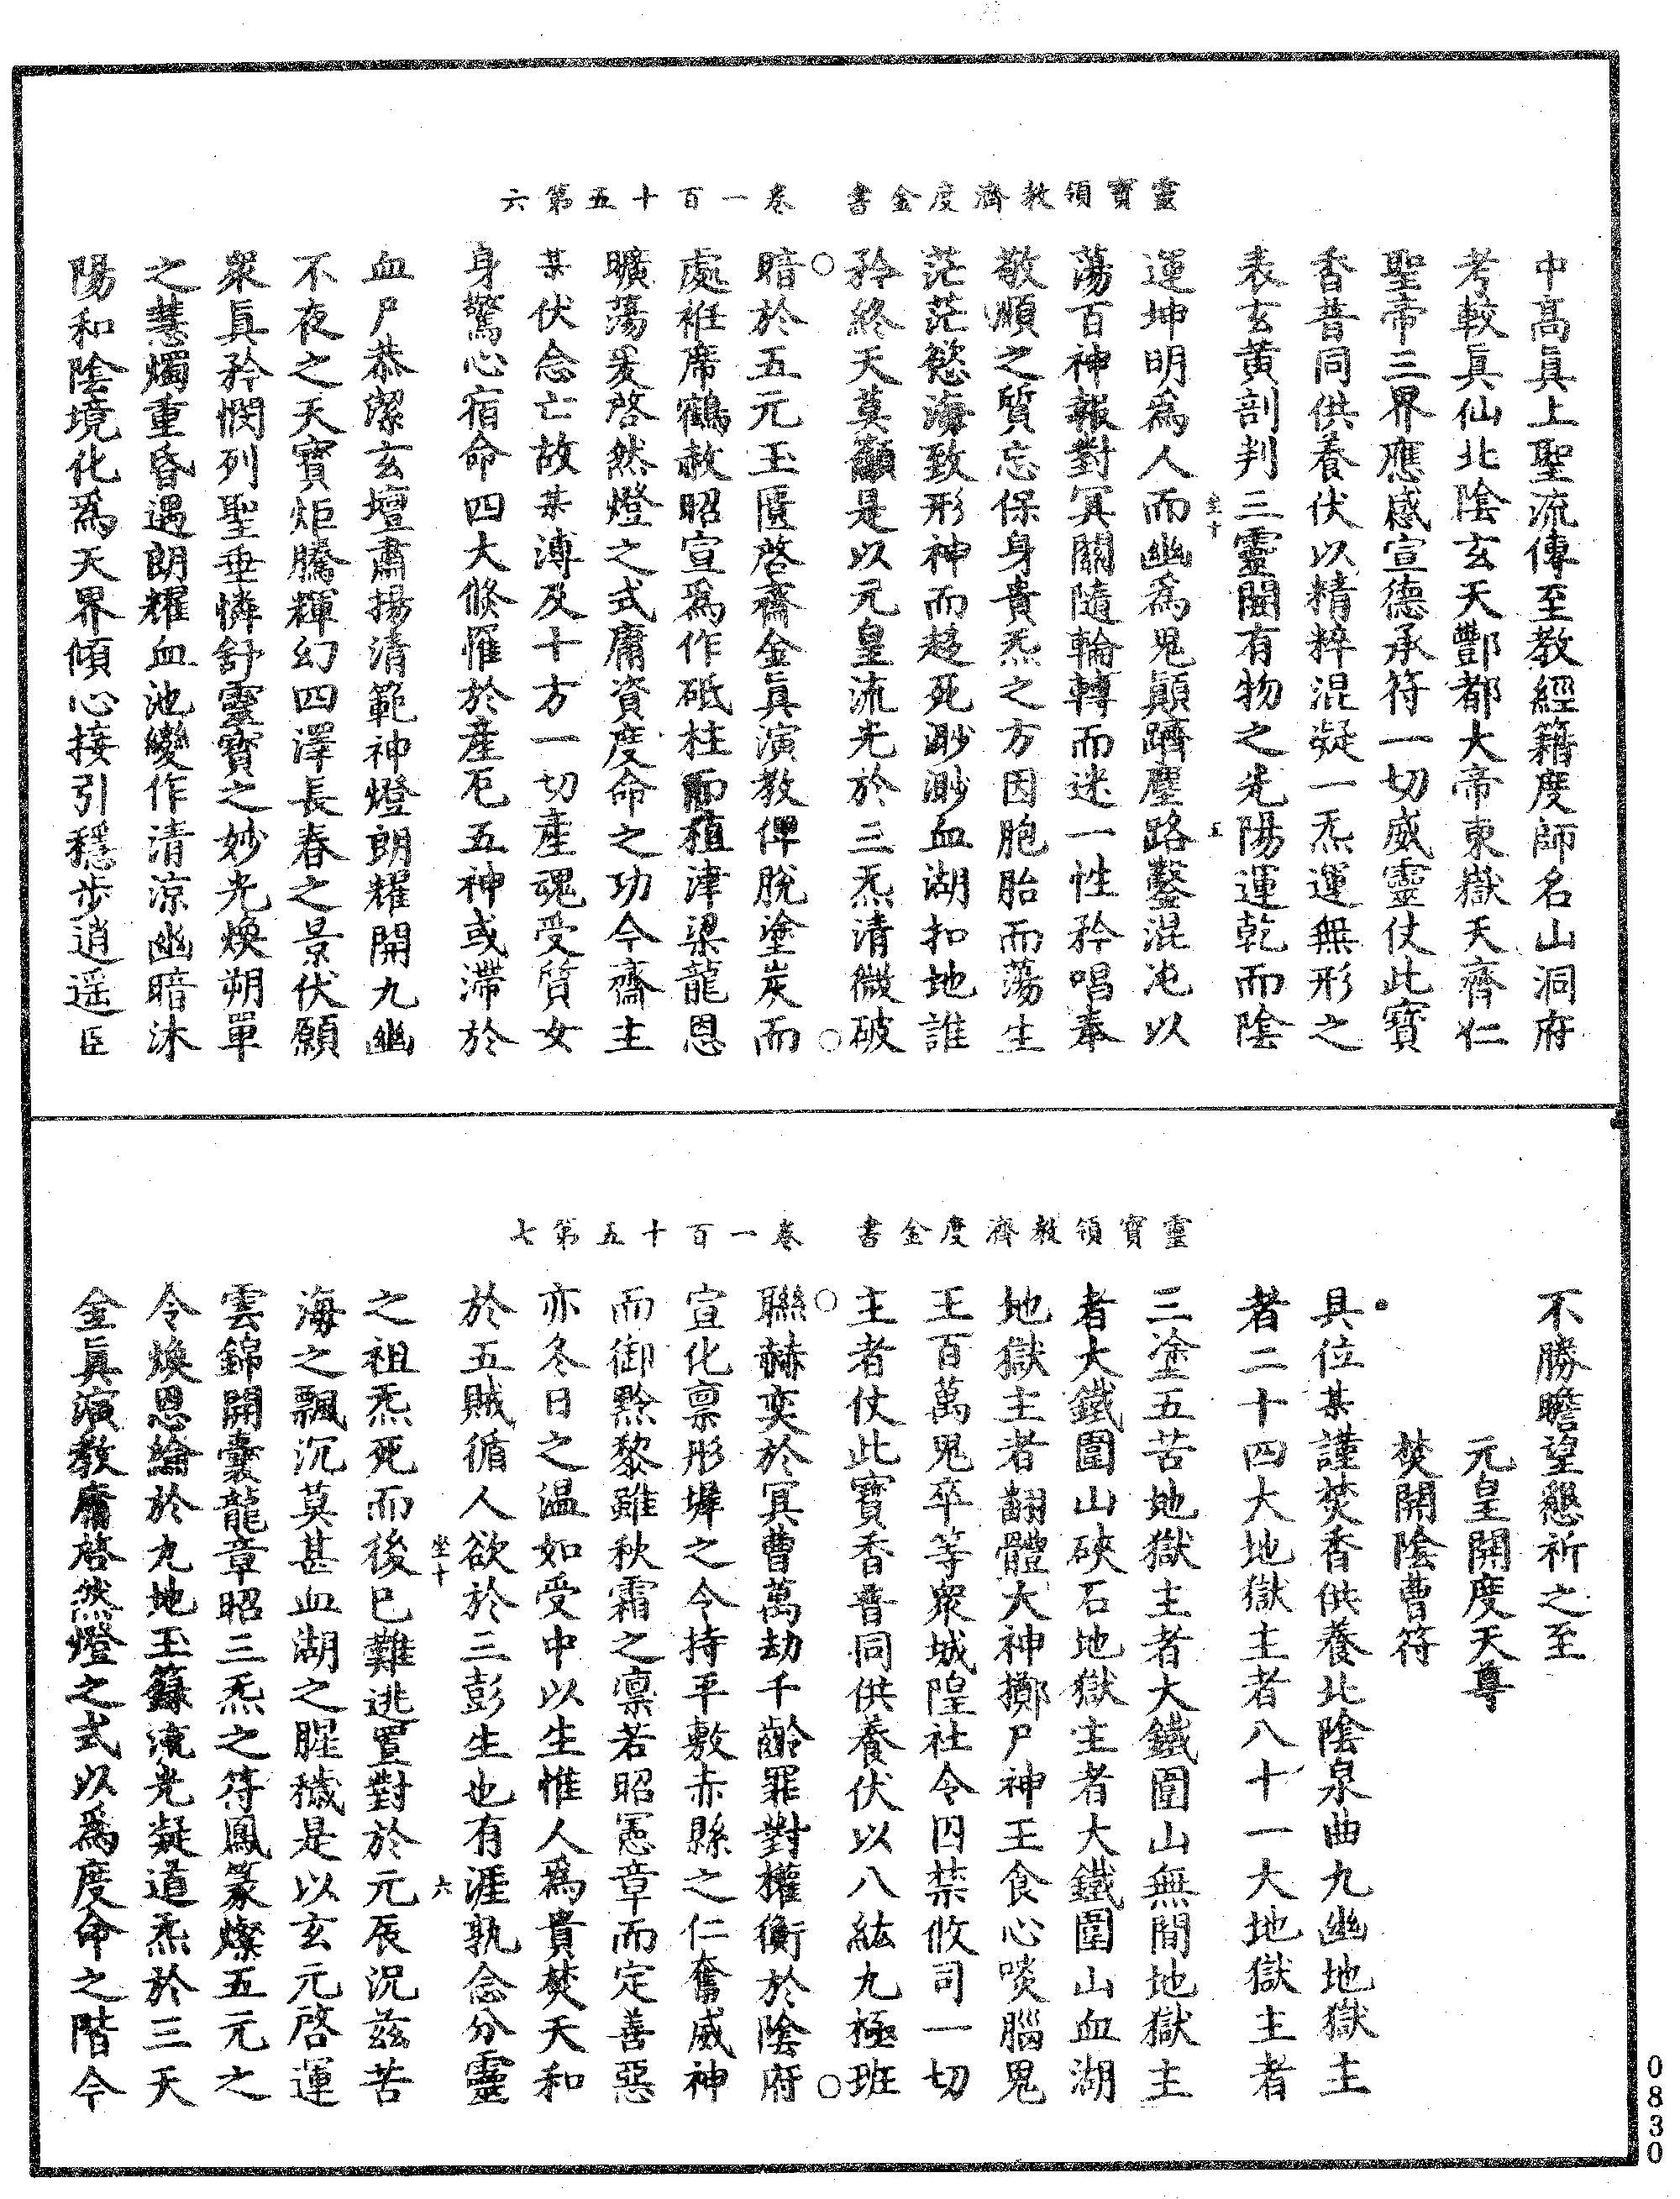 靈寶領教濟度金書　卷一百十五第六
中高眞上聖流傳至教經籍度師名山洞府
考較眞仙北陰玄天酆都大帝東嶽天齊仁
聖帝三界應感宣德承符一切威靈仗此寶
香普同供養伏以精粹混凝一炁運無形之
表玄黄剖判三靈闡有物之先陽運乾而陰
坐十　五
運坤明爲人而幽爲鬼顚躋壓路鑿混沌以
蕩百神報對冥關隨輪轉而迷一性矜唱奉
敬順之質忘保身貴炁之方因胞胎而蕩生
茫茫慾海致形神而趍死渺渺血湖扣地誰
矜終天莫籲是以元皇流光於三炁清微破
暗於五元玉匱啓齋金眞演教俾脫塗炭而
處袵席鶴赦昭宣爲作砥柱而植津梁龍恩
曠蕩爰啓然燈之式庸資度命之功今齋主
某伏念亡故某溥及十方一切產魂受質女
身驚心宿命四大倐罹於產厄五神或滯於
血尸恭潔玄壇肅揚清範神燈朗耀開九幽
不夜之天寶炬騰輝幻四澤長春之景伏願
衆眞矜憫列聖垂憐舒靈寶之妙光煥朔單
之慧燭重昏遇朗耀血池變作清凉幽暗沐
陽和陰境化爲天界傾心接引穩步逍遥臣
靈寶領教濟度金書　卷一百十五第七
不勝瞻望懇祈之至
元皇開度天尊
焚開陰曹符
具位某謹焚香供養北陰泉曲九幽地獄主
者二十四大地獄主者八十一大地獄主者
三塗五苦地獄主者大鐵圍山無間地獄主
者大鐵圍山硤石地獄主者大鐵圍山血湖
地獄主者翻體大神擲尸神王食心啖腦鬼
王百萬鬼卒等衆城隍社令囚禁收司一切
主者仗此寶香普同供養伏以八紘九極班
聯赫奕於冥曹萬劫千齡罪對權衡於陰府
宣化禀形墀之令持平敷赤縣之仁奮威神
而御黔黎雖秋霜之凛若昭憲章而定善惡
亦冬日之温如受中以生惟人爲貴焚天和
於五賊循人欲於三彭生也有涯孰念分靈
坐十　六
之祖炁死而後已難逃置對於元辰況茲苦
海之飄沉莫甚血湖之腥穢是以玄元啓運
雲錦開囊龍章昭三炁之符鳳篆燦五元之
令煥恩綸於九地玉籙流光凝道炁於三天
金眞演教庸啓然燈之式以爲度命之階今
0830